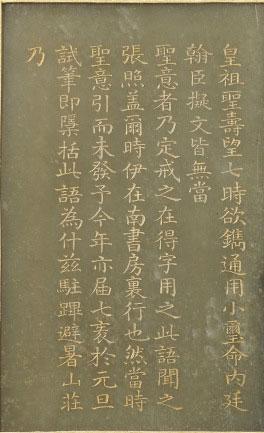 皇祖聖壽望七時欲鐫通用小璽命内廷
翰臣擬文皆無當
聖意者乃定戒之在得字用之此語聞之
張照蓋爾時伊在南書房裏行也然當時
聖意引而未發予今年亦届七袠於元旦
試筆即檃括此語為什兹駐蹕避暑山莊
乃